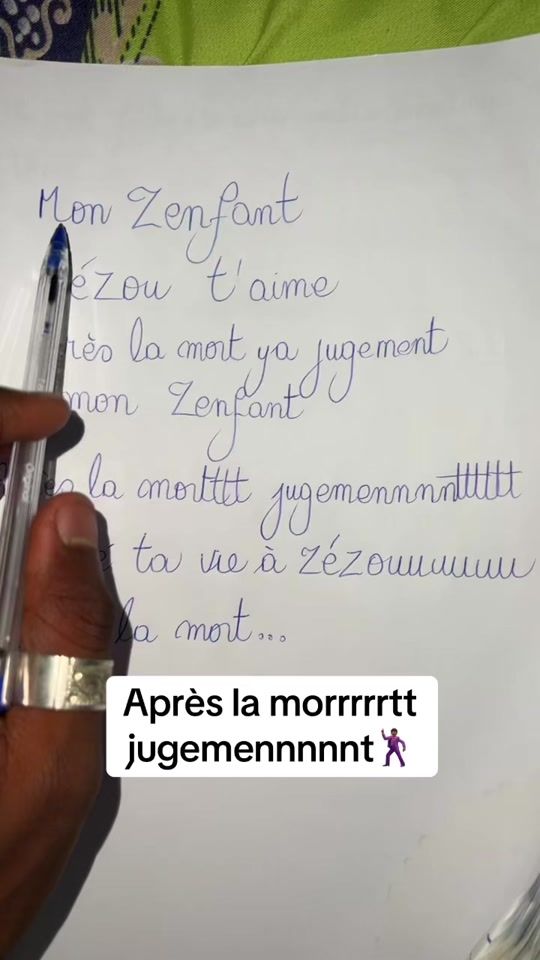 Mon Zenfant
ézou t'aime
rès la mort ya jugement
mon Zenfant
ès la mortttt jugemennnnntttttt
ta vie à zézouuuuuuu
la mort...
Après la morrrrrtt
jugemennnnnt🕺🏾